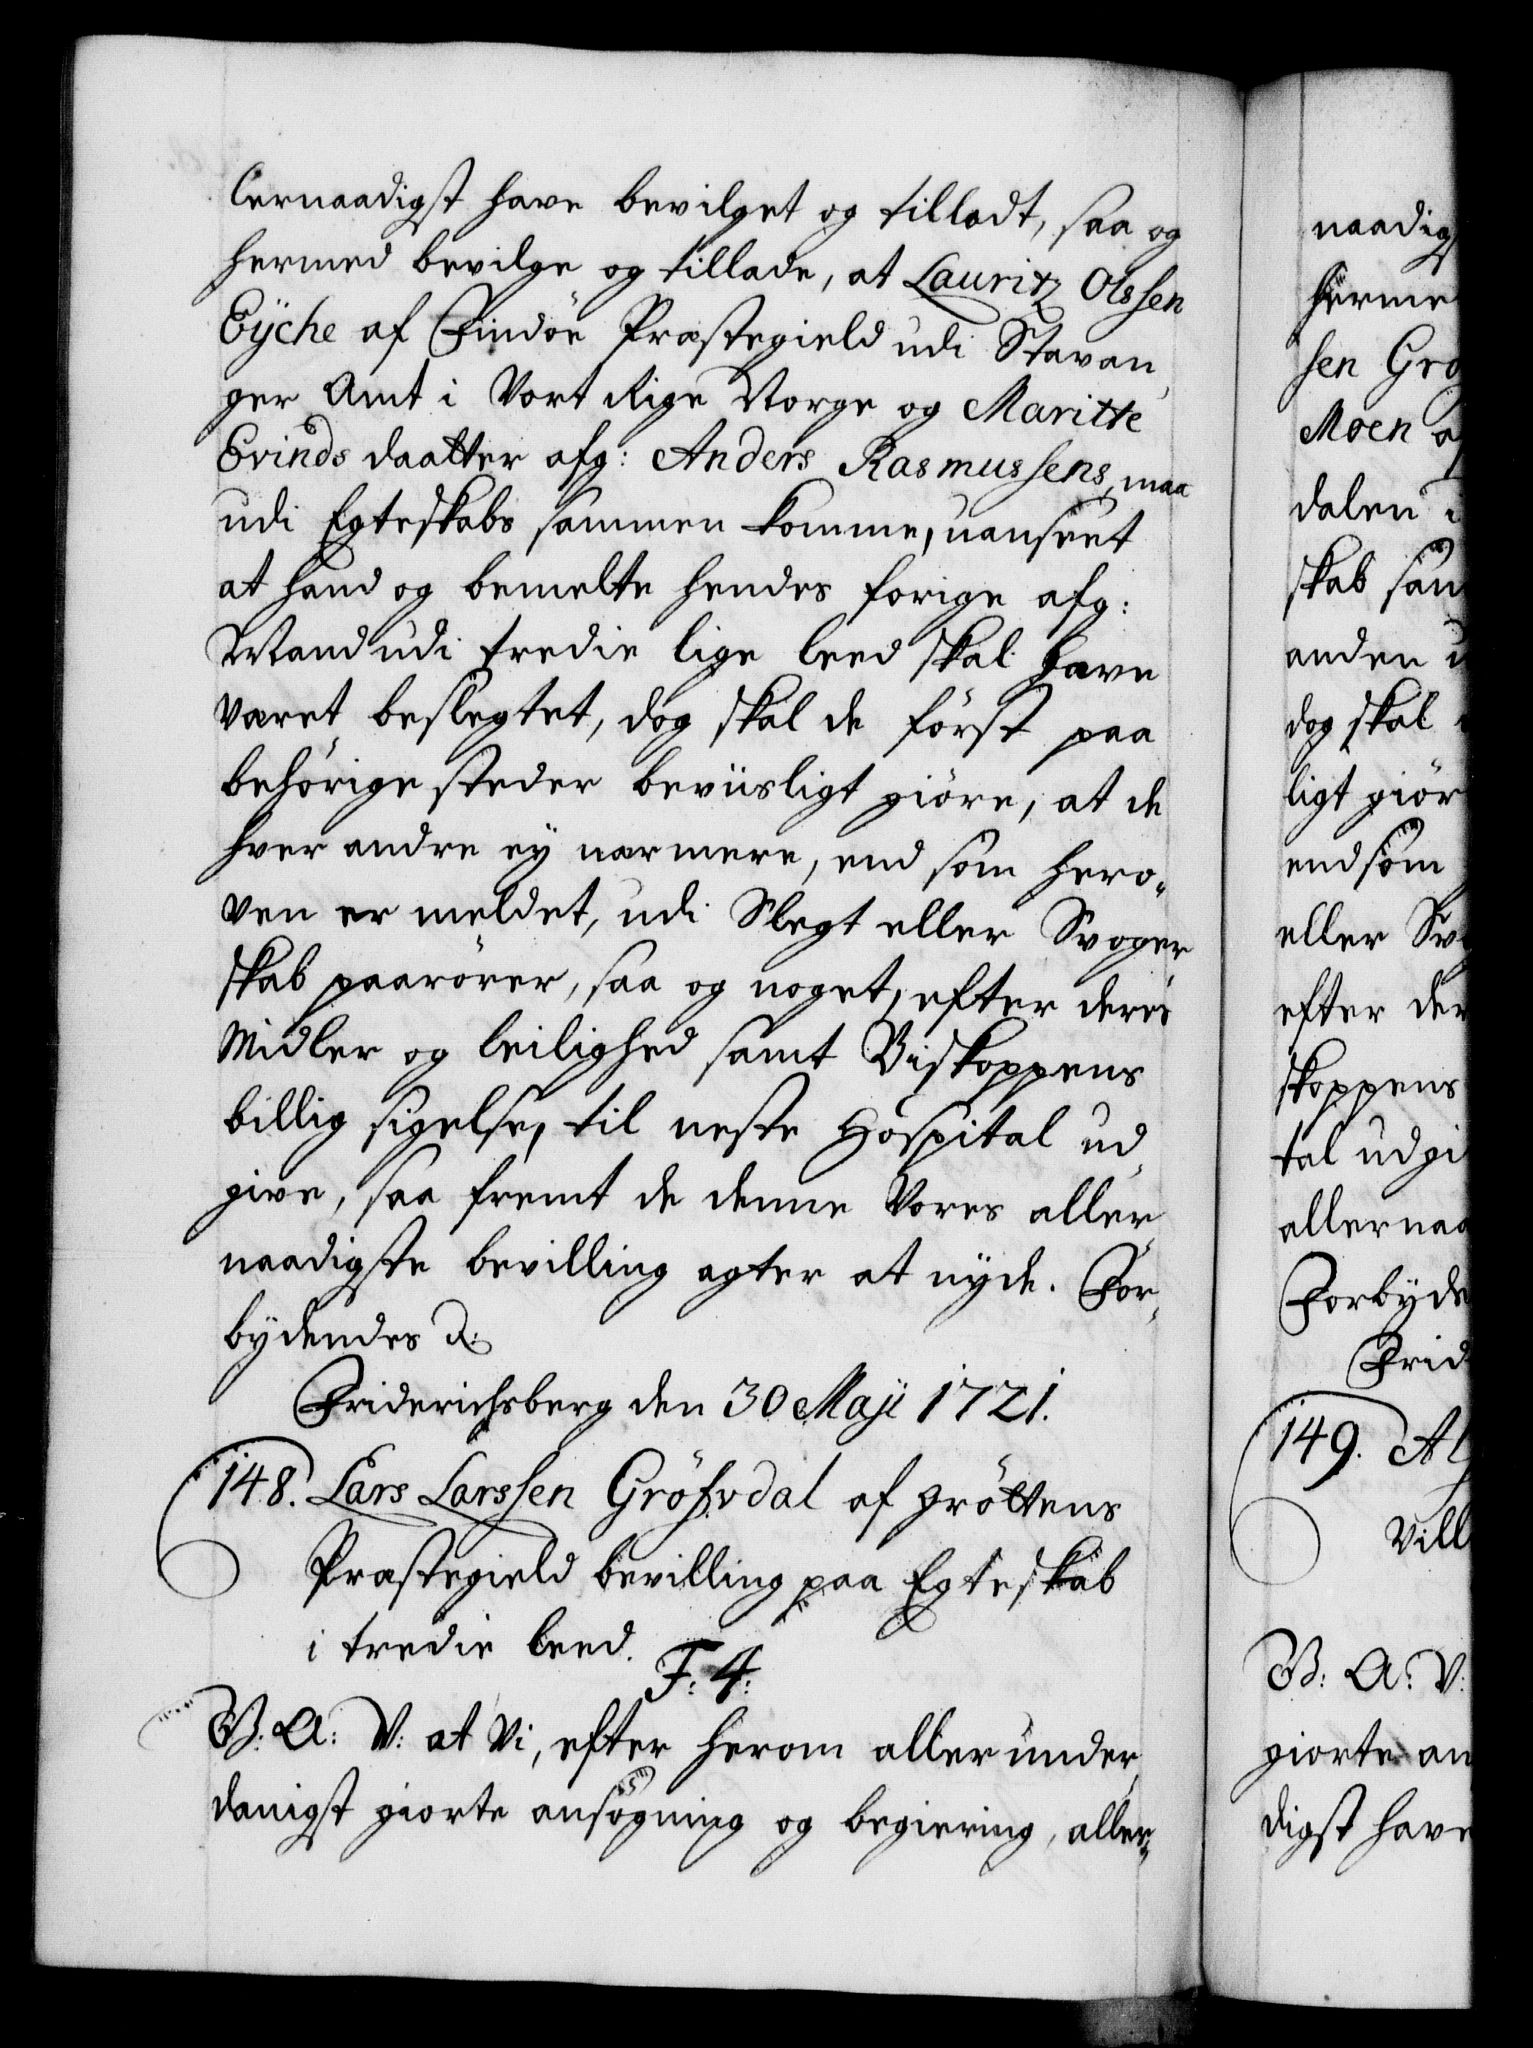 lernaadigst have bevilget og tilladt, saa og
hermed bevilge og tillade, at Lauritz Olssen
Eÿche af Findöe Præstegield udi Stavan,
ger Amt i Vort Rige Norge og Maritte
Evinds daatter afg: Anders Rasmussens, maa
udi Egteskabs sammen komme, uanseet
at hand og bemelte hendes forige afg:
Mand udi tredie lige leed skal have
været beslegtet, dog skal de först paa
behörige steder beviisligt giöre, at de
hver andre eÿ nærmere, end som hero-
ven er meldet, udi Slegt eller Svoger,
skab paarörer, saa og noget, efter deris
Midler og leilighed samt Biskoppens
billig sigelse, til neste Hospital ud
give, saa fremt de denne Vores aller,
naadigste bevilling agter at nÿde. For,
bÿdendes &:
Friderichsberg den 30 Maji 1721.
148. Lars Larssen Gröfvdal af gröttens
Præstegield bevilling paa Egteskab
i tredie leed.
F: 4:
G: A: V: at Vi, efter herom allerunder,
danigst giorte ansögning og begiering, aller-
naadigs
herme
sen Gro
Moen a
dalen i
skab sam
anden u
dog skal
ligt giör
end som
eller Sv
efter der
skoppens
tal udgi
allernaa
Forbÿde
Frid
149. Al
Vill
G: A: V:
giorte an
digst have